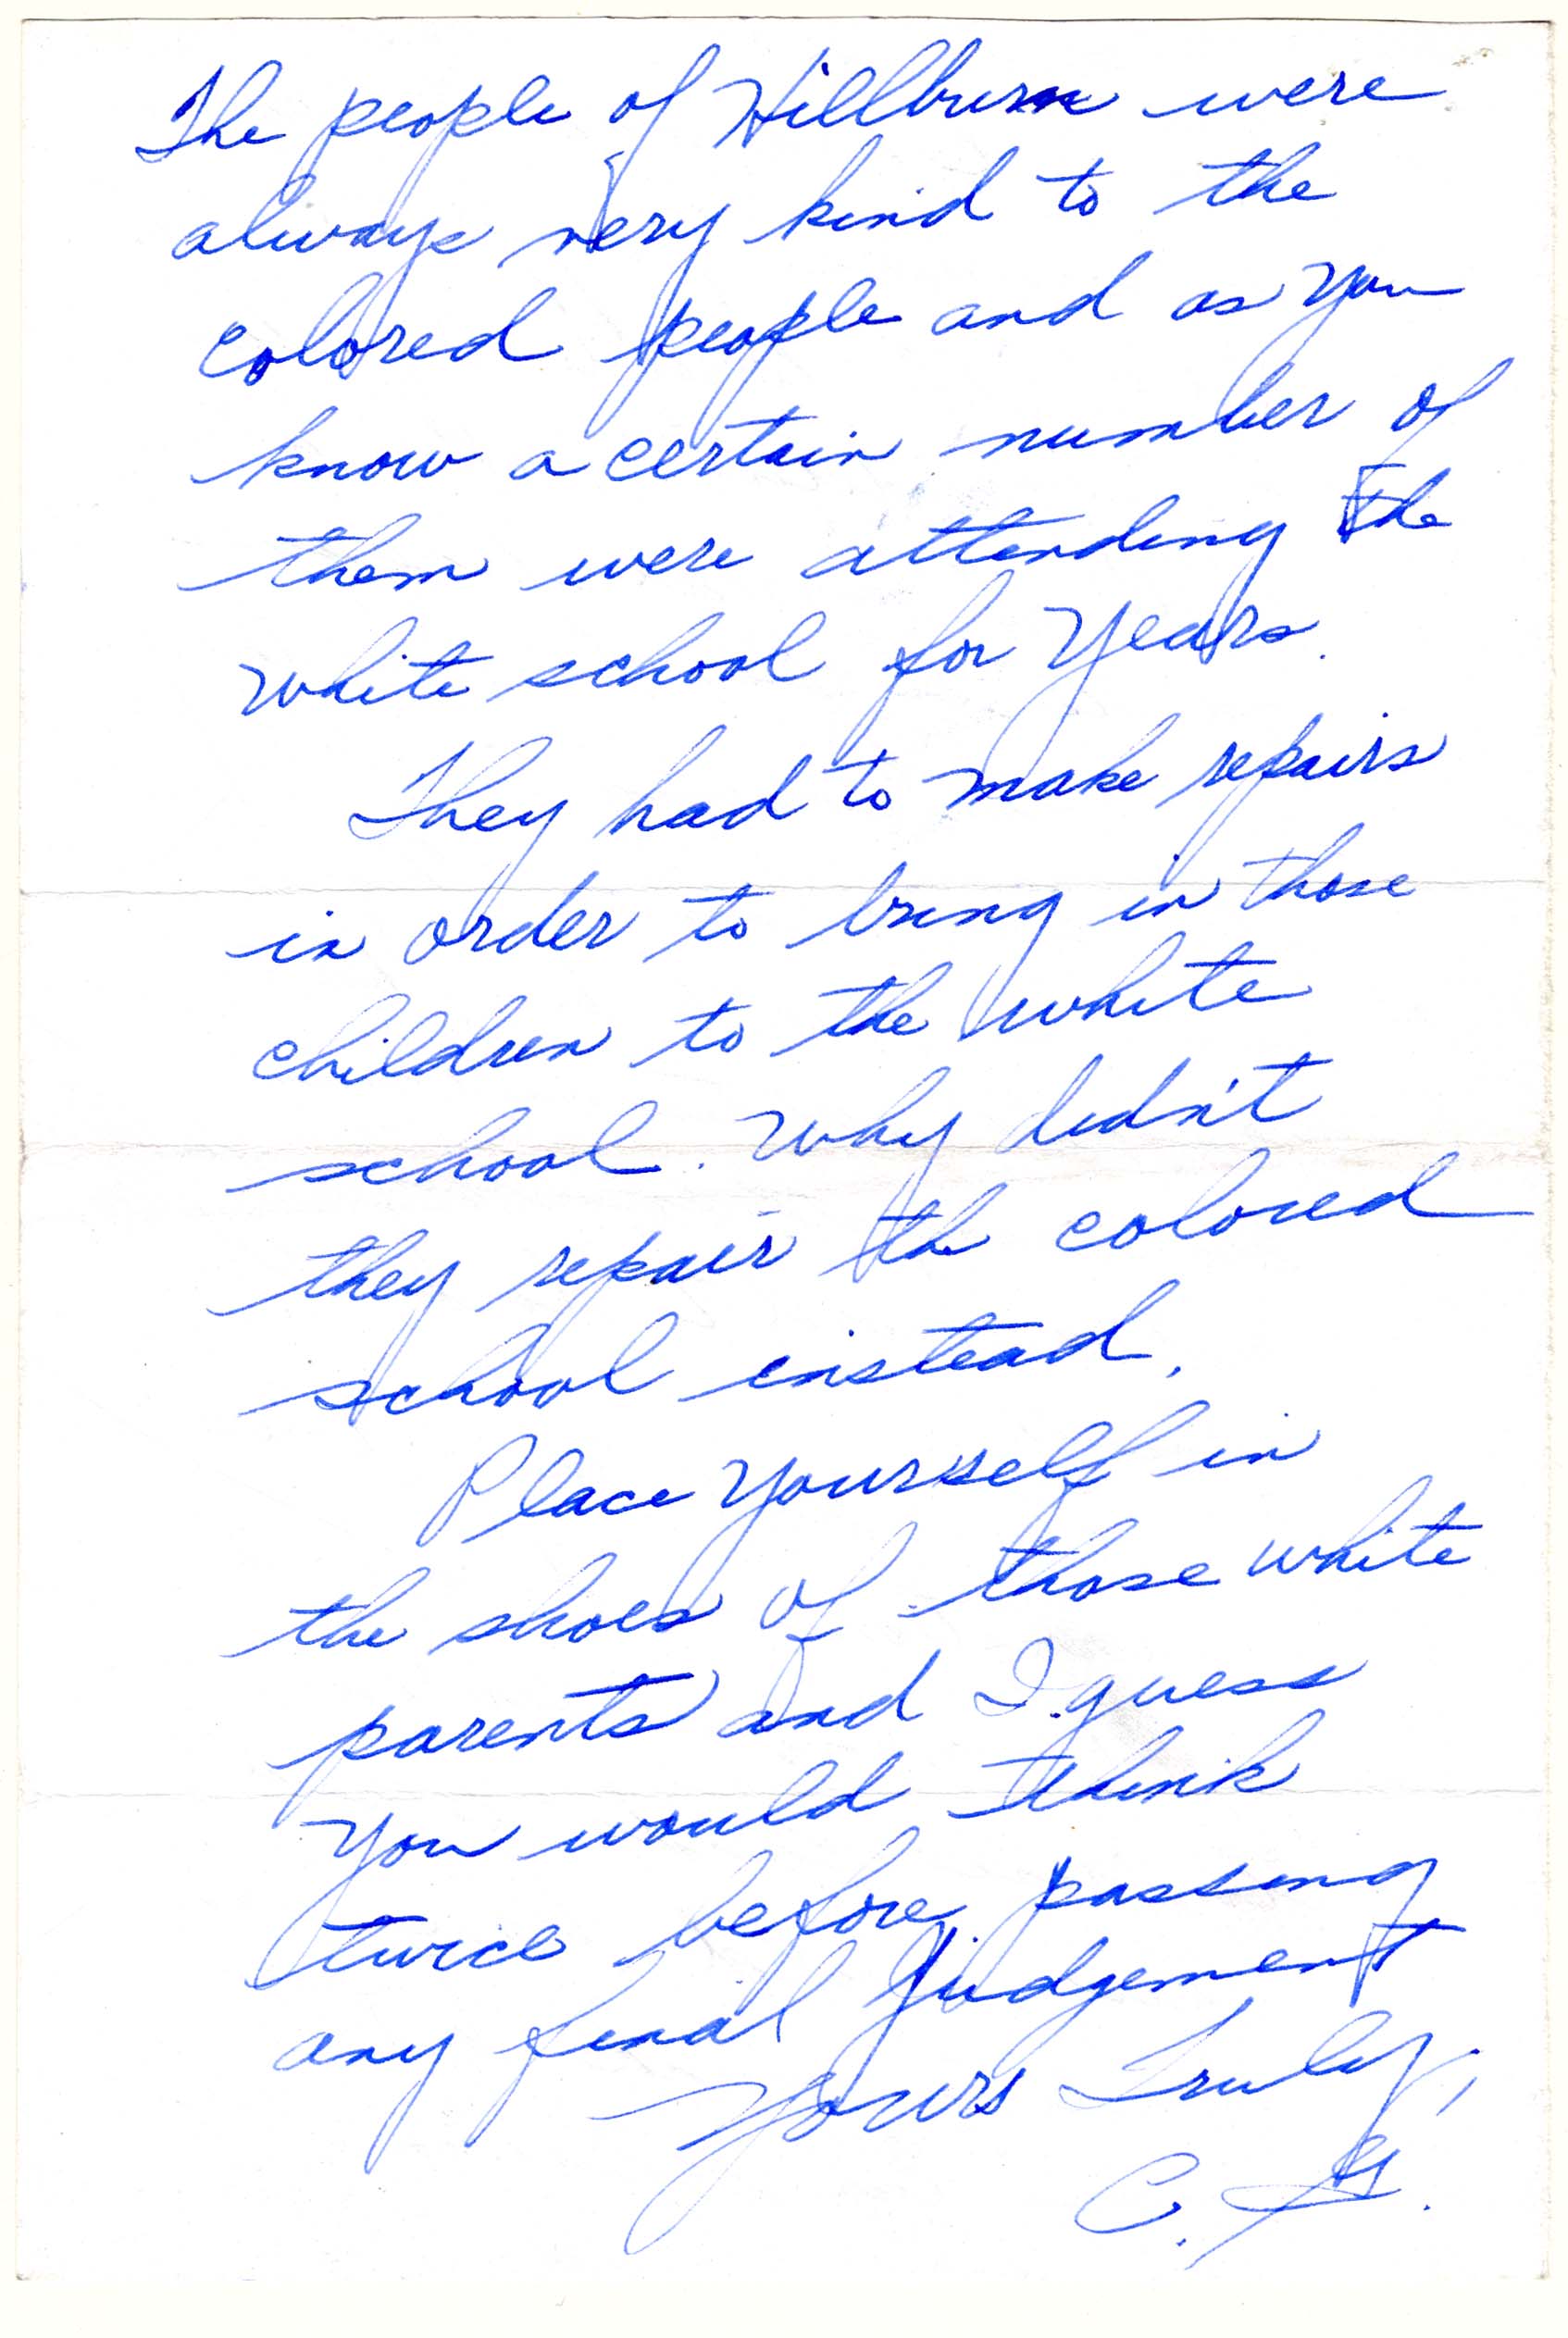 The people of Hillburn were
always very kind to the
colored people and as you
know a certain number of
them were attending the
white school for years.
They had to make repairs
in order to bring in those
children to the white
school. Why didn't
they repair th colored
school instead.
Place yourself in
the shoes of those white
parents and I guess
you would think
twice before passing
any final judgement
Yours Truly,
C.